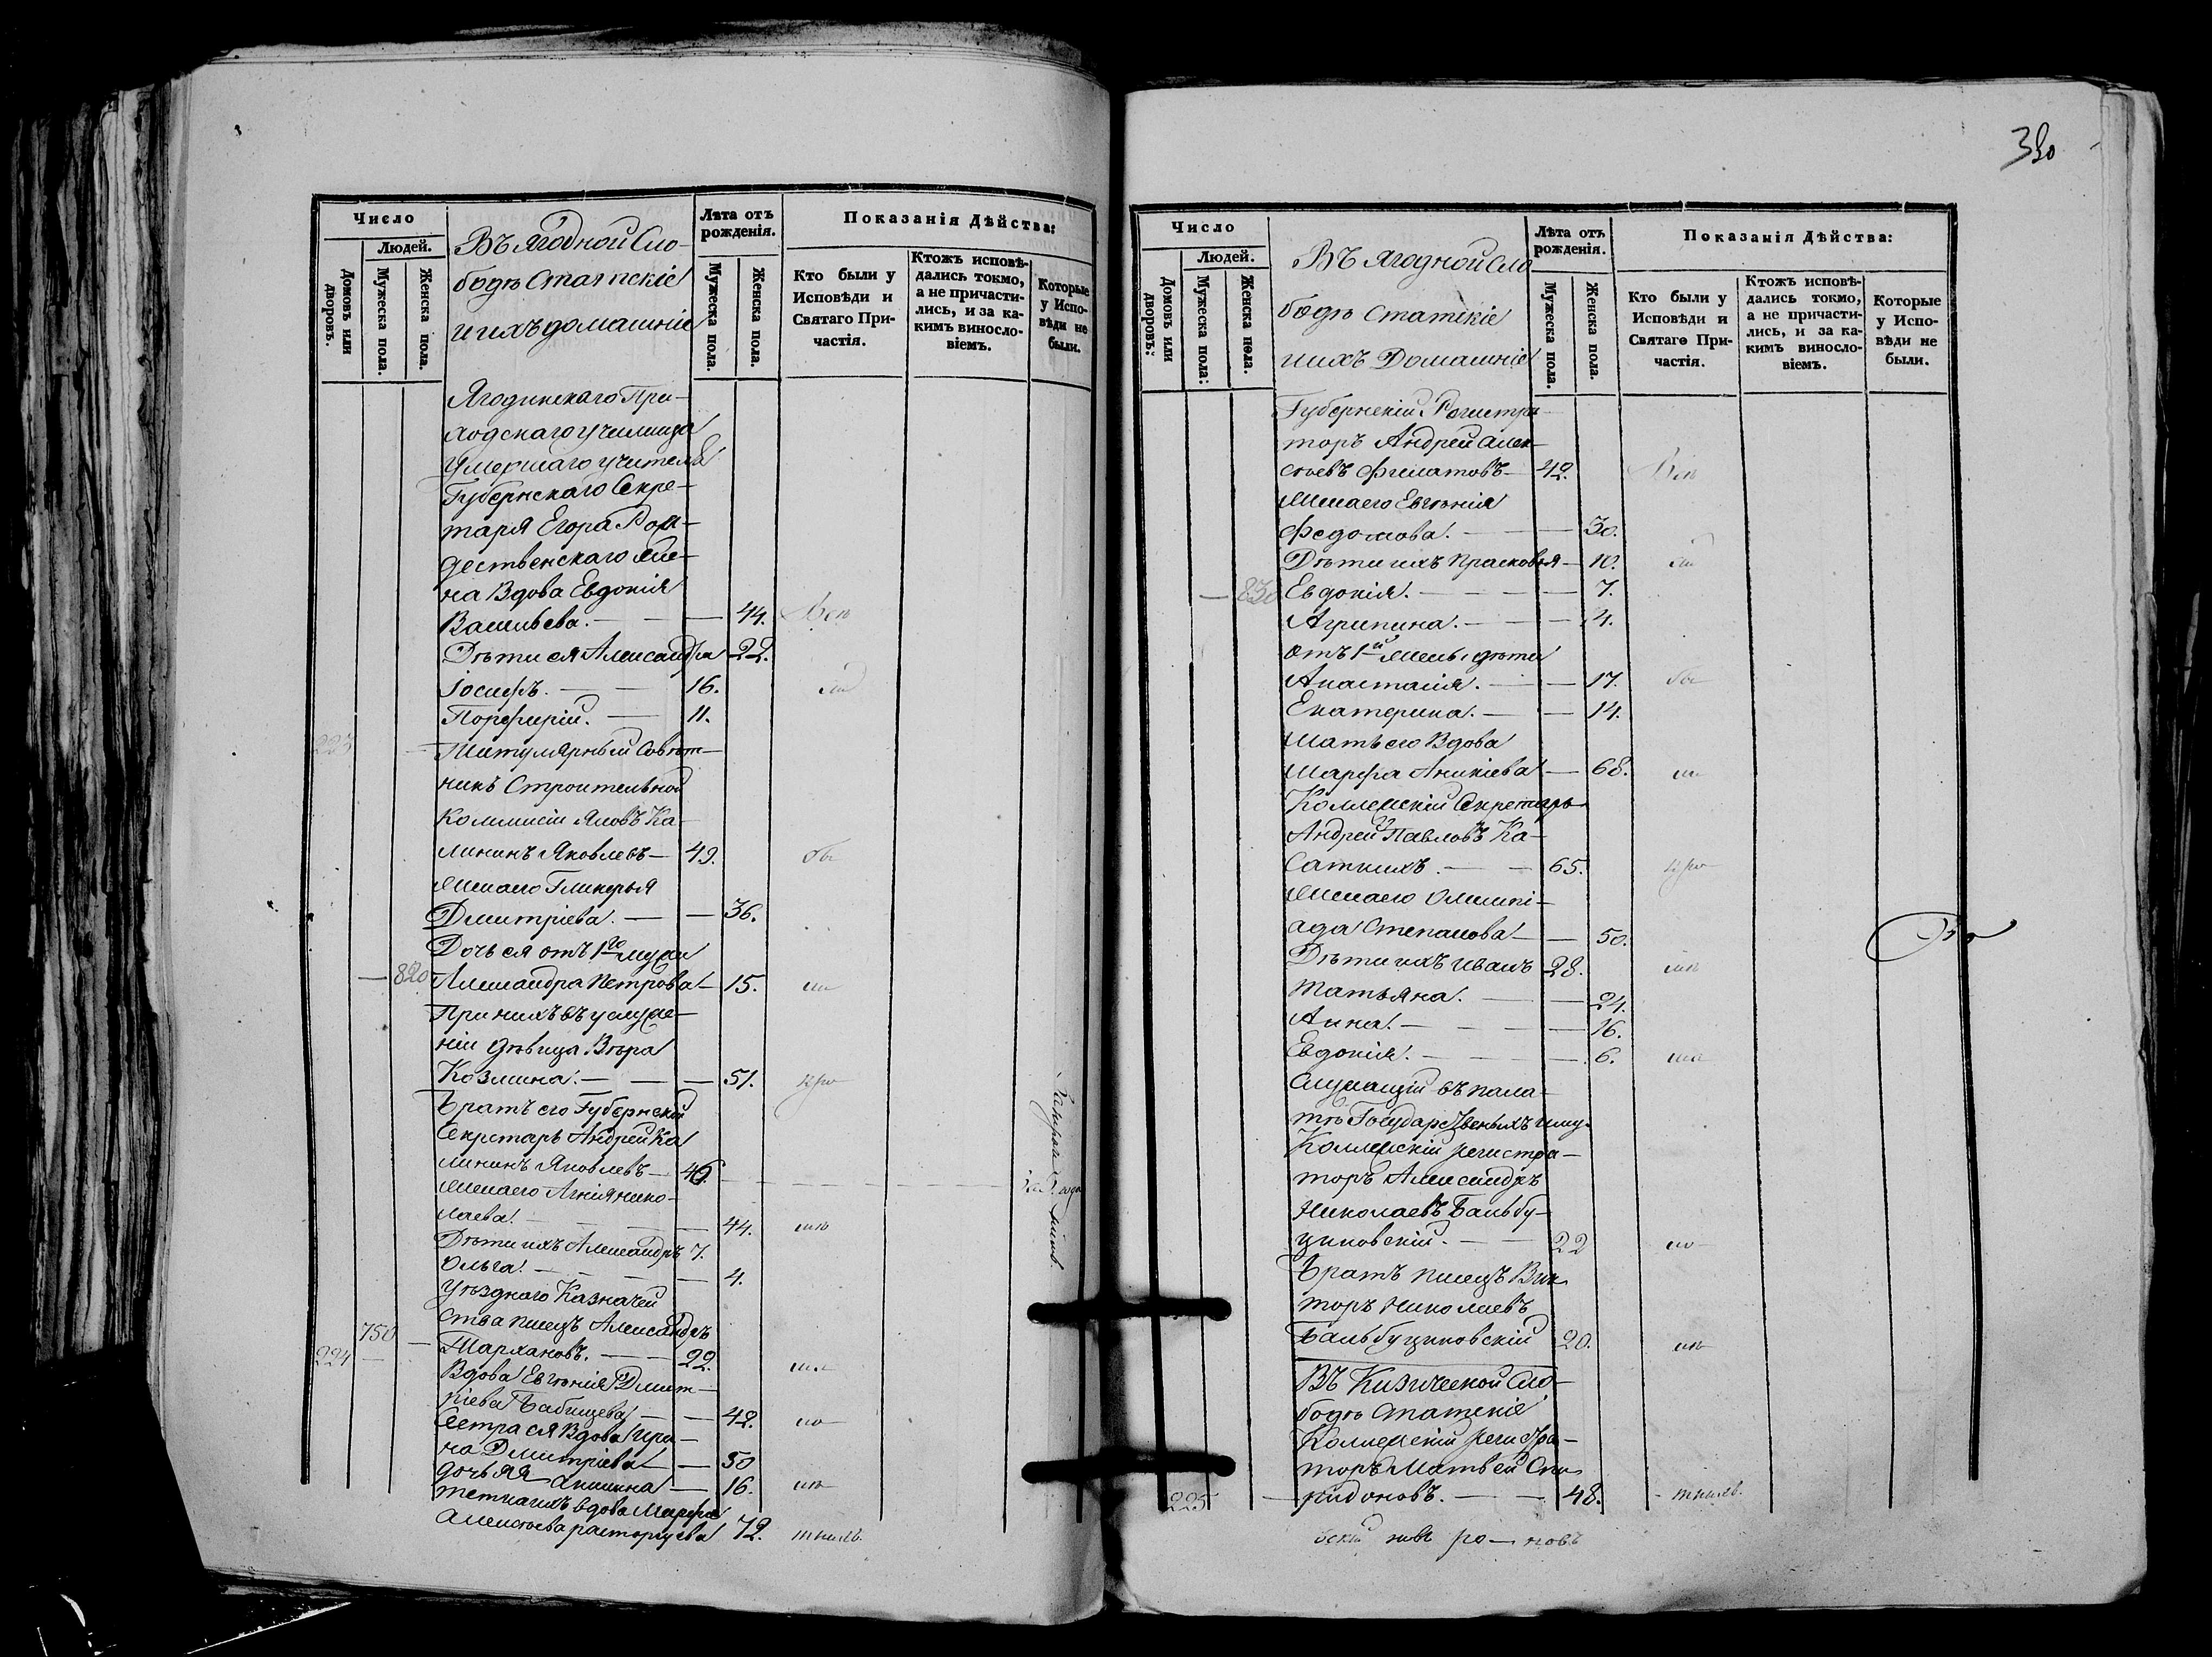 Число
Людей.
Домовъ или дворовъ.
Мужеска пола.
Женска пола.
Въ Ягодной Сло-
бодѣ Статскіе
и ихъ домашніе
Лѣта отъ рожденія.
Мужеска пола.
Женска пола.
Показанія Дѣйства:
Кто были у Исповѣди и Святаго Причастія.
Ктожъ исповѣдались токмо, а не причастились, и за какимъ винословіемъ.
Которые у Исповѣди не были.
Ягодинскаго При-
ходскаго училища
умершаго учителя
Губернскаго Секре-
таря Егора Рож-
дественскаго же-
на Вдова Евдокія
Васильева. — 44.
Дѣти ея Александра 22.
Іосифъ. — 16.
Порфирій. — 11.
223
Титулярный Совѣт-
никъ Строительной
Коммисіи Яковъ Ка-
лининъ Яковлевъ — 49. бы
Жена его Гликерья
Дмитріева. — 36.
Дочь ея отъ 1го мужа
— 820 Александра Петрова — 15. ли
При нихъ въ услуже-
ніи дѣвица Вѣра
Козмина. — 51.
Братъ его Губернскій
Секретарь Андрей Ка
лининъ Яковлевъ — 46.
Жена его Агнія Нико-
лаева. — 44.
Дѣти ихъ Александръ 7.
Ольга. — 4.
Уѣзднаго Казначей
ства писецъ Александръ
750
Тархановъ. — 22.
224 — Вдова Евгенія Дмит-
ріева Бабищева — 42.
Сестра ея Вдова Ири-
на Дмитріева — 50
дочь ея — 16.
тетка ихъ вдова Марфа
Алексѣева расторгуева 72.
320
Число
Людей.
Домовъ или дворовъ:
Мужеска пола:
Женска пола.
Въ Ягодной Сло
бодѣ Статскіе
и ихъ Домашніе
Лѣта отъ рожденія.
Мужеска пола.
Женска пола.
Показанія Дѣйства:
Кто были у Исповѣди и Святаго Причастія.
Ктожъ исповѣдались токмо, а не причастились, и за какимъ винословіемъ.
Которые у Исповѣди не были.
Губернскій Регистра-
торъ Андрей Алек-
сѣевъ Филатовъ — 42.
Жена его Евгенія
Федотова. — 30.
Дѣти ихъ Прасковья — 10.
— 830 Евдокія. — 7.
Агрипина. — 4.
отъ 1й жены дѣти
Анастасія. — 17. бы
Екатерина. — 14.
Мать его Вдова
Марфа Аникіева — 68. ли
Коллежскій Секретарь
Андрей Павловъ Ка-
саткинъ. — 65.
Жена его Олимпі-
ада Степанова — 50.
Дѣти ихъ Иванъ 28.
Татьяна. — 24.
Анна. — 16.
Евдокія. — 6.
Служащій въ пала-
тѣ Государственныхъ иму.
Коллежскій регистра-
торъ Александръ
Николаевъ Бальбу-
циновскій. — 22
Братъ писецъ Вик
торъ Николаевъ
Бальбуциновскій 20.
Въ Кизической Сло-
бодѣ Статскіе
Коллежскій регистра-
торъ Матвей Спи
225 — ридоновъ. — 48.